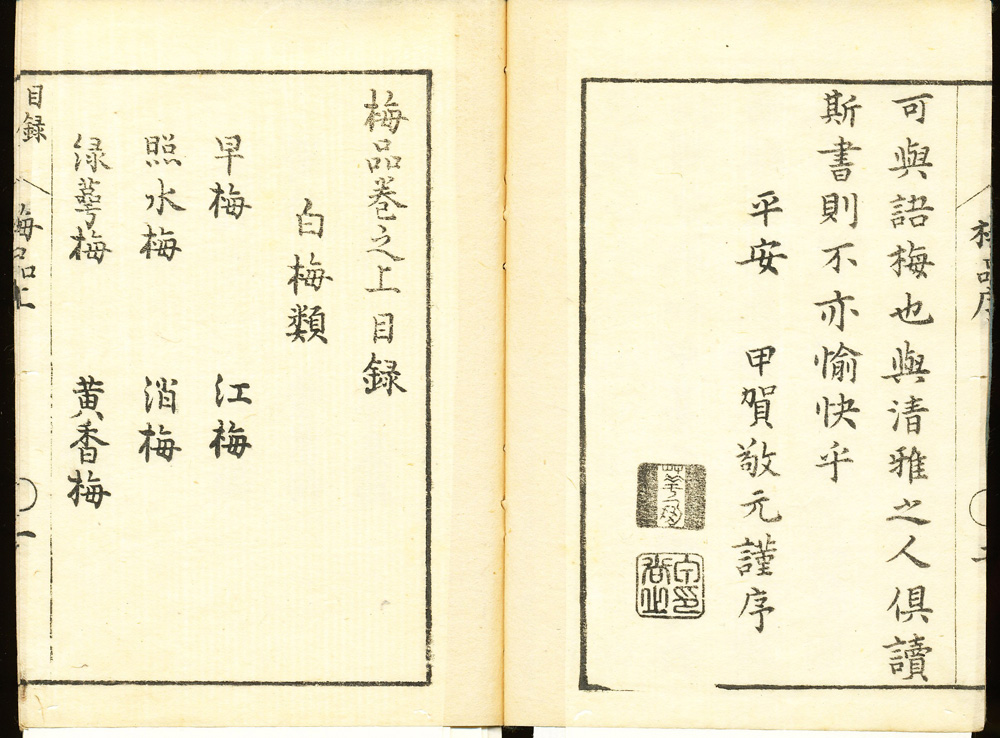 可與語梅也與清雅之人俱讀
斯書則不亦愉快乎
平安 甲賀敬元謹序
梅品巻之上目録
白梅類
早梅 江梅
照水梅 消梅
緑萼梅 黄香梅
目録 梅品上 一